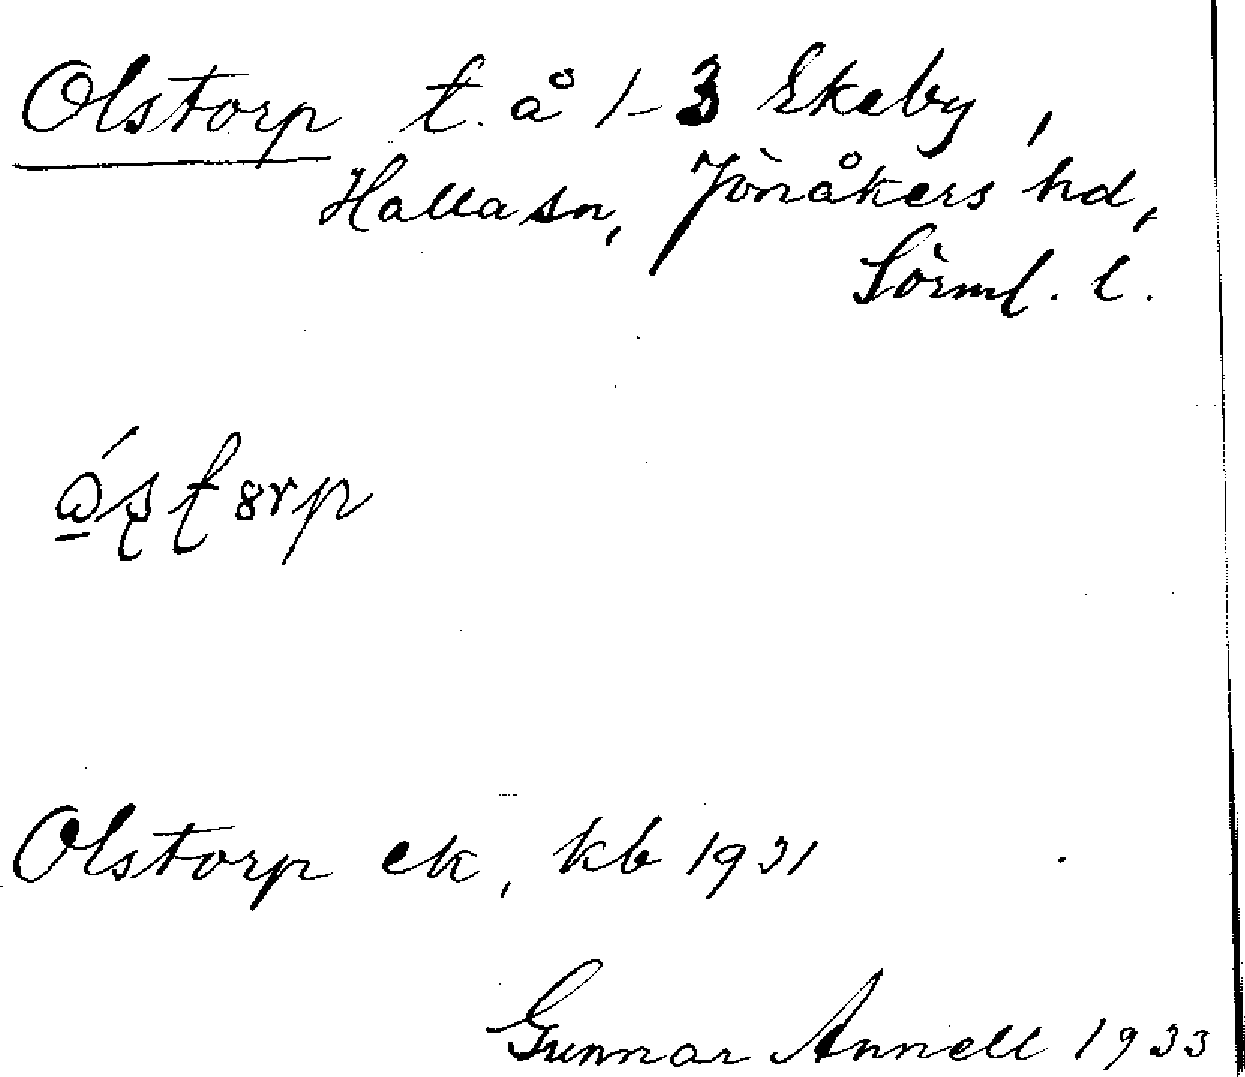 Olstorp t. å 1-3 Ekeby,
Halla sn, Jönåkers hd,
Sörml. l.
Olstorp ek, kb 1931
Gunnar Annell 1933